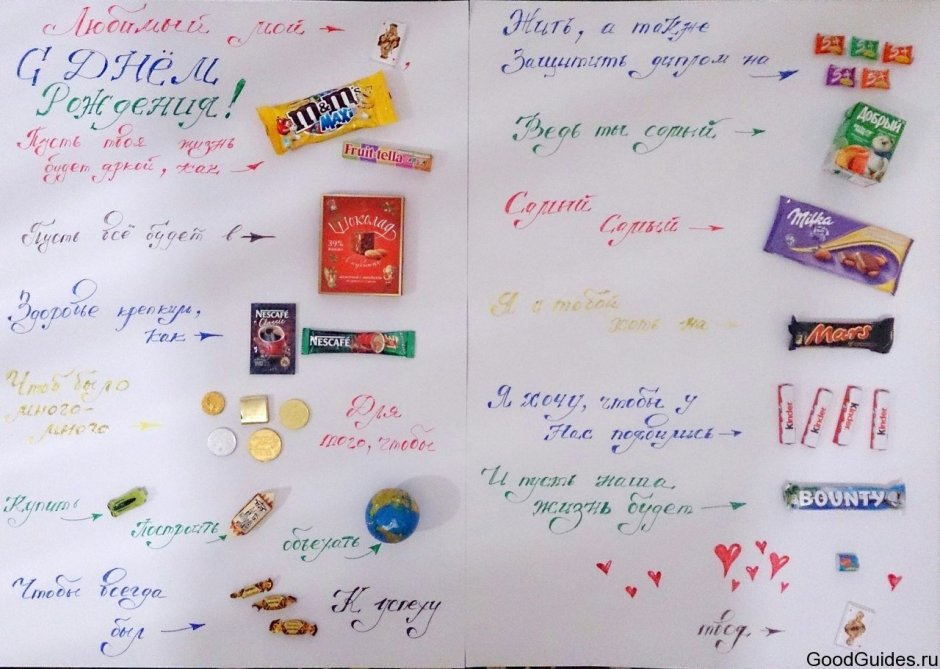 Любимый мой
С ДНЁМ
Рождения!
Пусть твоя жизнь
будет яркой, как
m&m's
MAXI
Fruit-tella
Пусть всё будет в
Шоколад
39%
Здоровье крепким,
как
NESCAFÉ
Classic
NESCAFÉ
Чтоб было
много-
много
Для
того, чтобы
Купить
Построить
объехать
Чтобы всегда
был
К успеху
Жить, а также
Защитить диплом на
Ведь ты самый
Добрый
Самый
Самый
Milka
Я с тобой
хоть на
Mars
Я хочу, чтобы у
Нас появились
Kinder
Kinder
Kinder
Kinder
И пусть наша
жизнь будет
BOUNTY
твоя
GoodGuides.ru